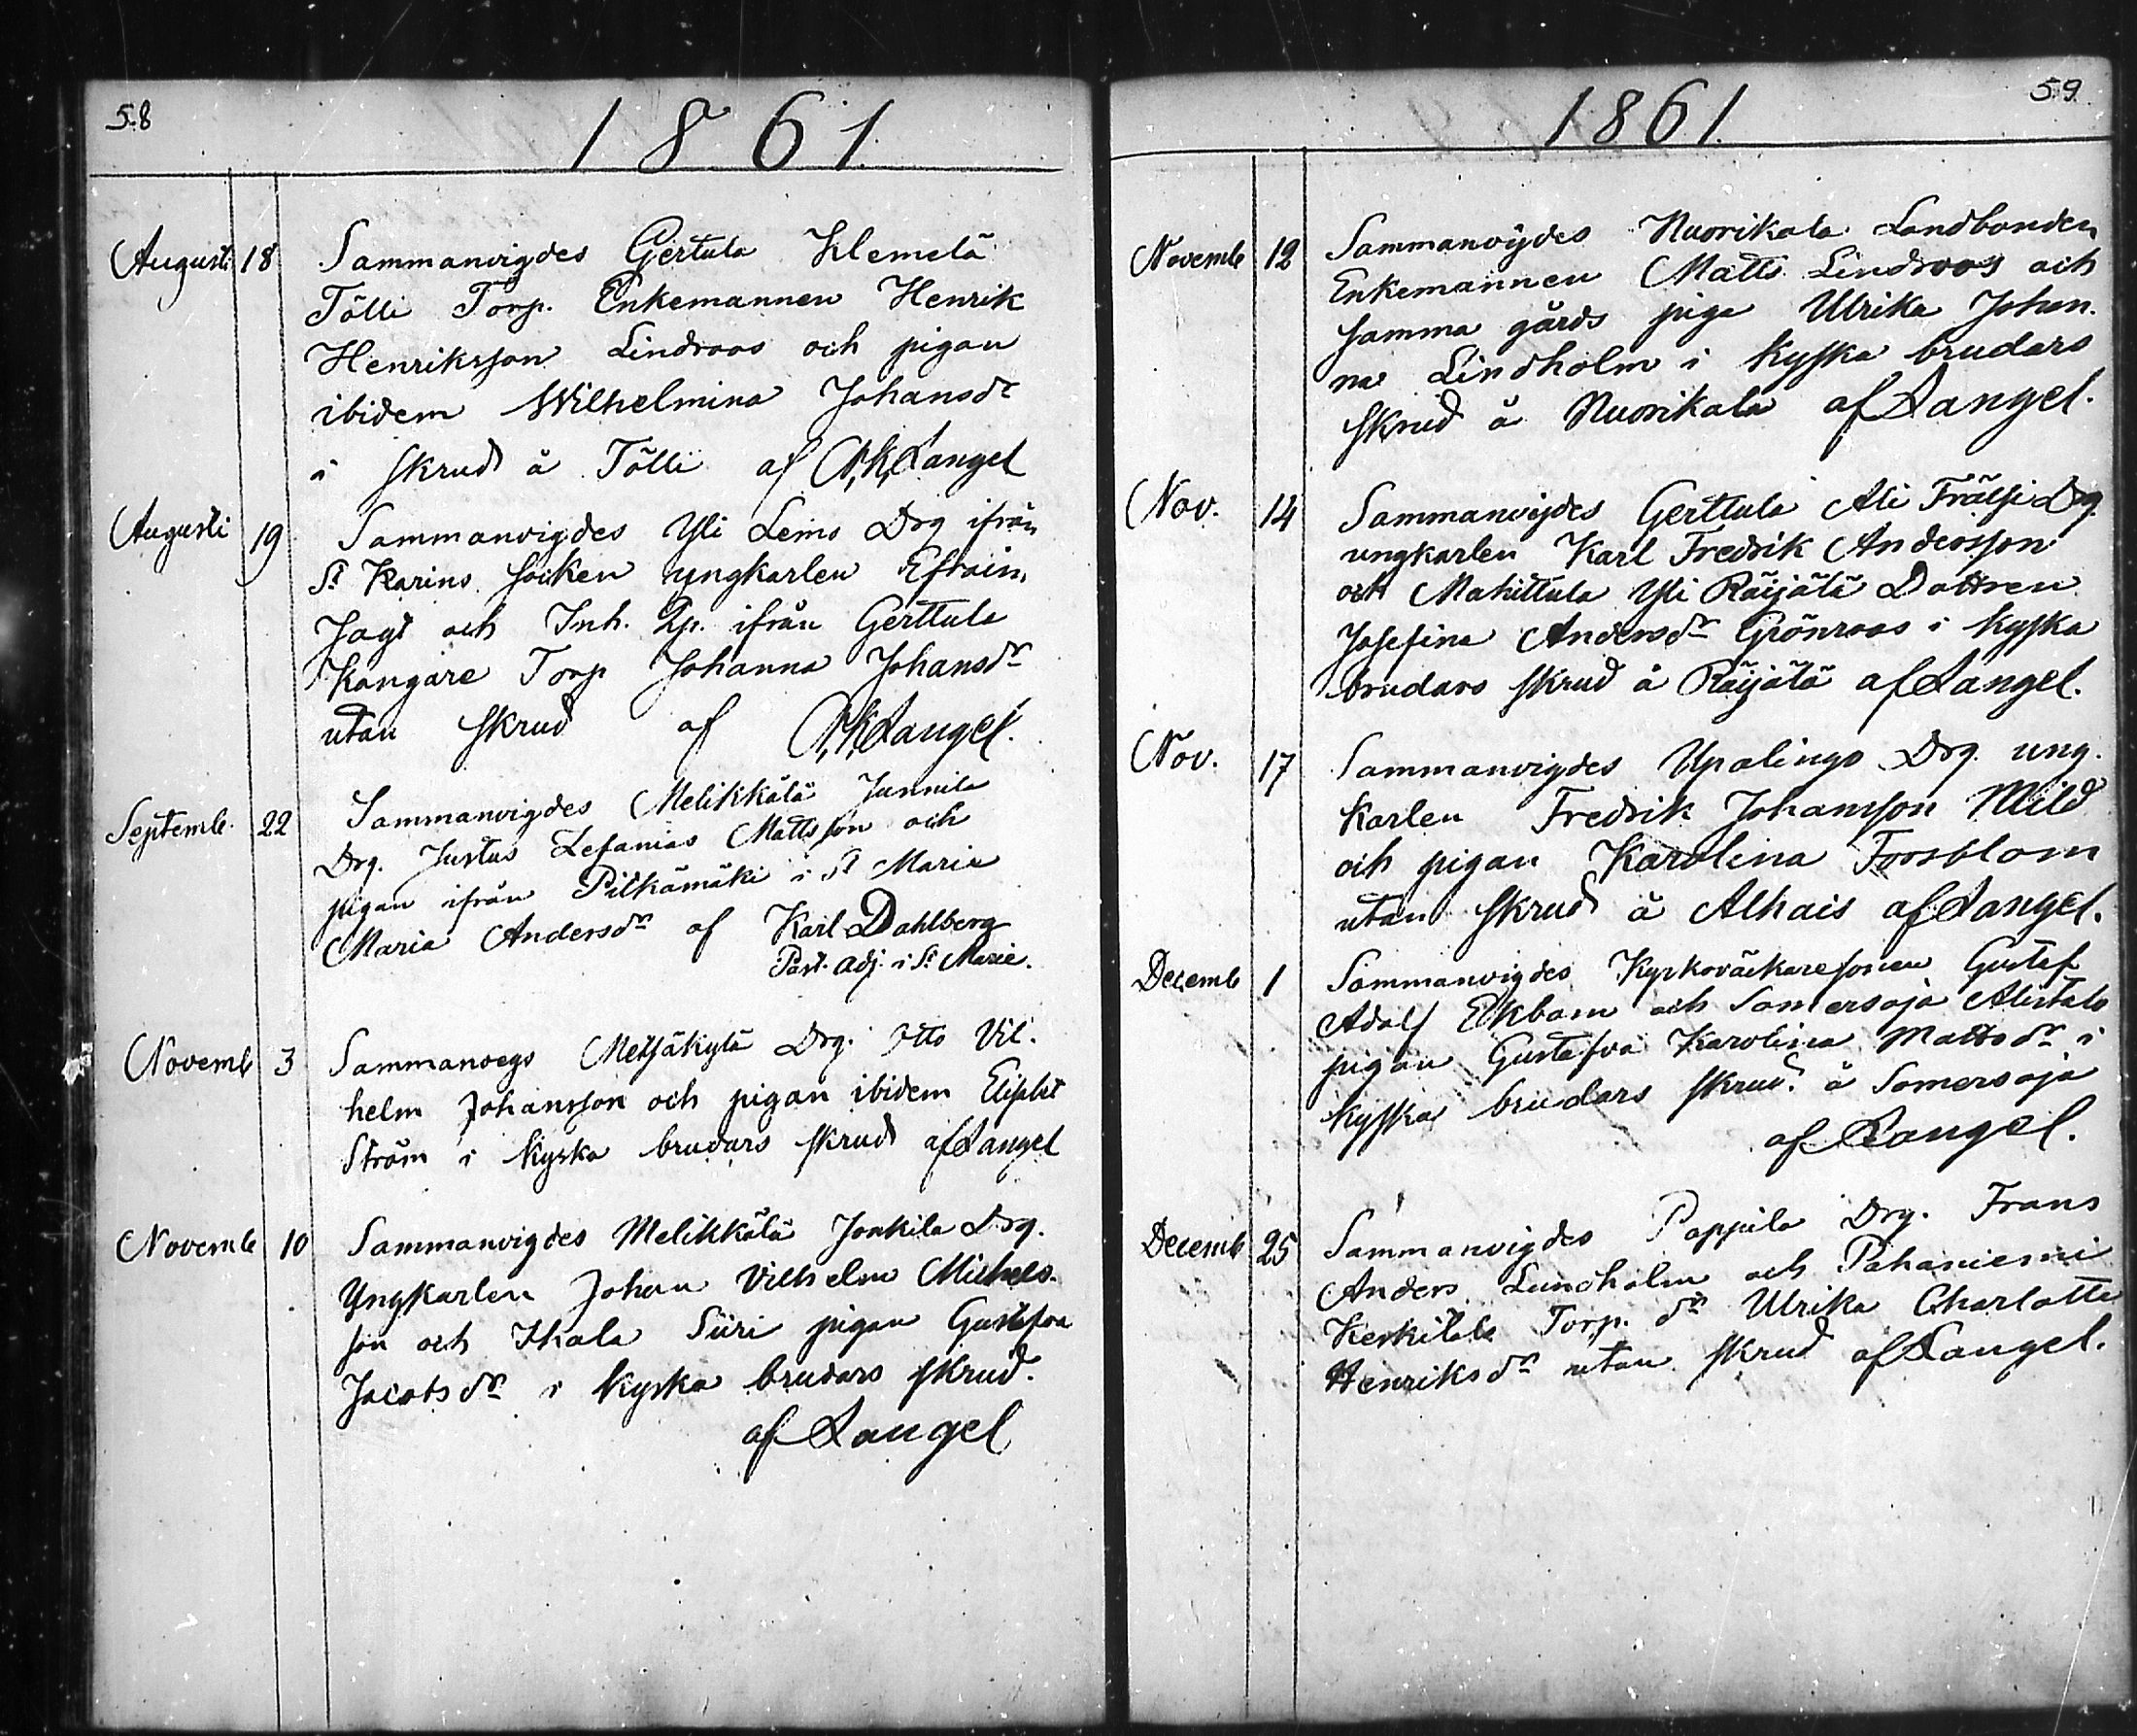 58
1861.
Augusti 18 Sammanvigdes Gertula Klemelä
Tölli Torp. Enkemannen Henrik
Henriksson Lindroos och pigan
ibidem Wilhelmina Johansdr
i skrud å Tölli af A,K,Langel
Augusti 19 Sammanvigdes Yli Lems Drg ifrån
St Karins socken yngkarlen Efraim
Jagt och Inh. Dp. ifrån Gerttula
Kangare Torp Johanna Johansdr
utan skrud af A,K,Langel.
Septemb. 22 Sammanvigdes Melikkälä Junnila
Drg. Justus Zefanias Mattsson och
pigan ifrån Pitkämäki i St Marie
Maria Andersdr af Karl Dahlberg
Past. adj. i St Marie.
Novemb 3 Sammanvegs Metsäkylä Drg. Otto Vil.
helm Johansson och pigan ibidem Elisabet
Ström i kyska brudars skrud af Langel
Novemb 10 Sammanvigdes Melikkälä Jonkila Drg.
Yngkarlen Johan Vilhelm Michels.
son och Ikala Siiri pigan Gustafva
Jacobsdr i kyska brudars skrud.
af Langel
59
1861.
Novemb 12 Sammanvigdes Nuorikala Landbonden
Enkemannen Matts Lindroos och
samma gårds piga Ulrika Johan.
na Lindholm i kyska brudars
skrud å Nuorikala af Langel.
Nov. 14 Sammanvigdes Gerttula Ali Frälsi Drg.
ungkarlen Karl Fredrik Andersson
och Mahittula Yli Räijälä Dottren
Josefina Andersdr Grönroos i kyska
brudars skrud å Räijälä af Langel.
Nov. 17 Sammanvigdes Upalingo Drg. ung.
karlen Fredrik Johansson Mild
och pigan Karolina Forsblom
utan skrud å Alhais af Langel.
Decemb 1 Sammanvigdes Kyrkoväckaresonen Gustaf
Adolf Ekbom och Somersoja Alistalo
pigan Gustafva Karolina Mattsdr i
kyska brudars skrud å Somersoja
af Langel.
Decemb 25 Sammanvigdes Pappila Drg. Frans
Anders Lundholm och Pahaniemi
Keskitalo Torp. dr Ulrika Charlotta
Henriksdr utan skrud af Langel.